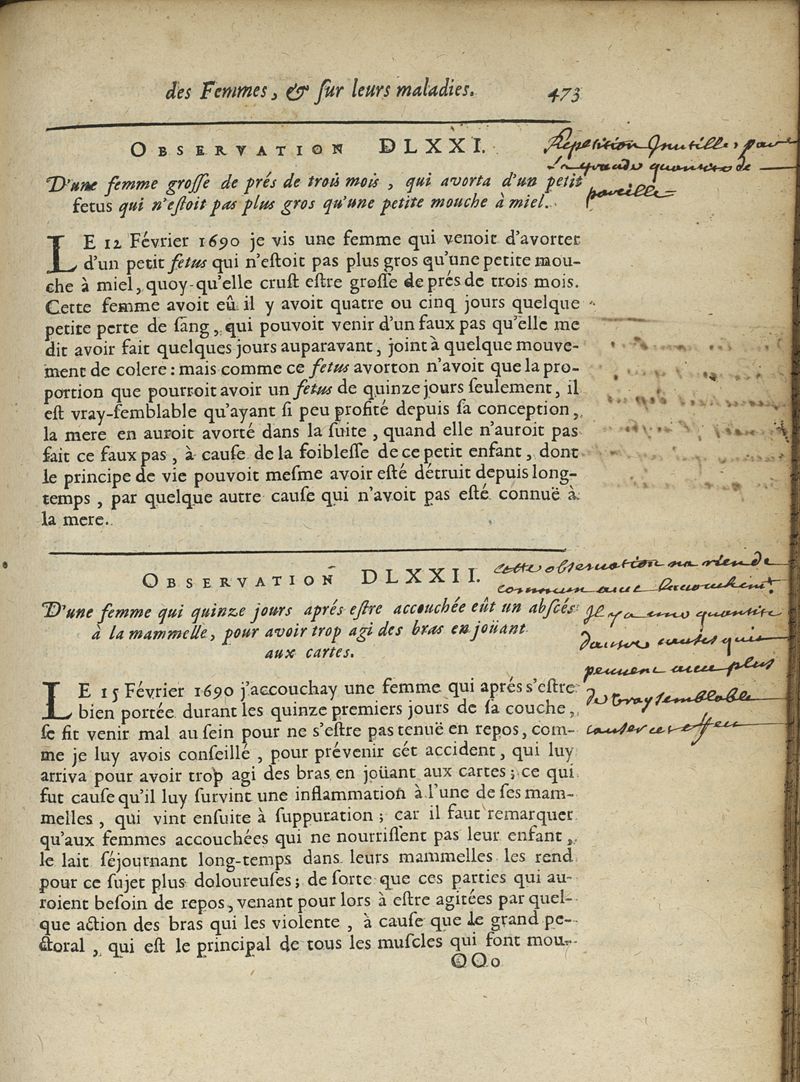 des Femmes, & ſur leurs maladies. 473
OBSERVATION DLXXI.
Repetition Jnutille, pour
la grande quantité de
pareille
D'une femme groſſe de prés de trois mois, qui avorta d'un petit
fetus qui n'eſtoit pas plus gros qu'une petite mouche à miel.
LE 12 Février 1690 je vis une femme qui venoit d'avorter
d'un petit fetus qui n'eſtoit pas plus gros qu'une petite mou-
che à miel, quoy-qu'elle cruſt eſtre groſſe de prés de trois mois.
Cette femme avoit eû il y avoit quatre ou cinq jours quelque
petite perte de ſang, qui pouvoit venir d'un faux pas qu'elle me
dit avoir fait quelques jours auparavant, joint à quelque mouve-
ment de colere : mais comme ce fetus avorton n'avoit que la pro-
portion que pourroit avoir un fetus de quinze jours ſeulement, il
eſt vray-ſemblable qu'ayant ſi peu profité depuis ſa conception,
la mere en auroit avorté dans la ſuite, quand elle n'auroit pas
fait ce faux pas, à cauſe de la foibleſſe de ce petit enfant, dont
le principe de vie pouvoit meſme avoir eſté détruit depuis long-
temps, par quelque autre cauſe qui n'avoit pas eſté connuë à
la mere.
OBSERVATION DLXXII.
cette obseruation na rien de
commun auec lacouchement
Jl y a une quantité
dautres causes qui
peuuent auec plus
de vraysemblable
causer cet effeu
D'une femme qui quinze jours aprés eſtre accouchée eût un abſcés
à la mammelle, pour avoir trop agi des bras en joüant
aux cartes.
LE 15 Février 1690 j'accouchay une femme qui aprés s'eſtre
bien portée durant les quinze premiers jours de ſa couche,
ſe fit venir mal au ſein pour ne s'eſtre pas tenuë en repos, com-
me je luy avois conſeillé, pour prévenir cét accident, qui luy
arriva pour avoir trop agi des bras en joüant aux cartes ; ce qui
fut cauſe qu'il luy ſurvint une inflammation à l'une de ſes mam-
melles, qui vint enſuite à ſuppuration ; car il faut remarquer
qu'aux femmes accouchées qui ne nourriſſent pas leur enfant,
le lait ſéjournant long-temps dans leurs mammelles les rend
pour ce ſujet plus doloureuſes ; de ſorte que ces parties qui au-
roient beſoin de repos, venant pour lors à eſtre agitées par quel-
que action des bras qui les violente, à cauſe que le grand pe-
ctoral, qui eſt le principal de tous les muſcles qui font mou-
OOo